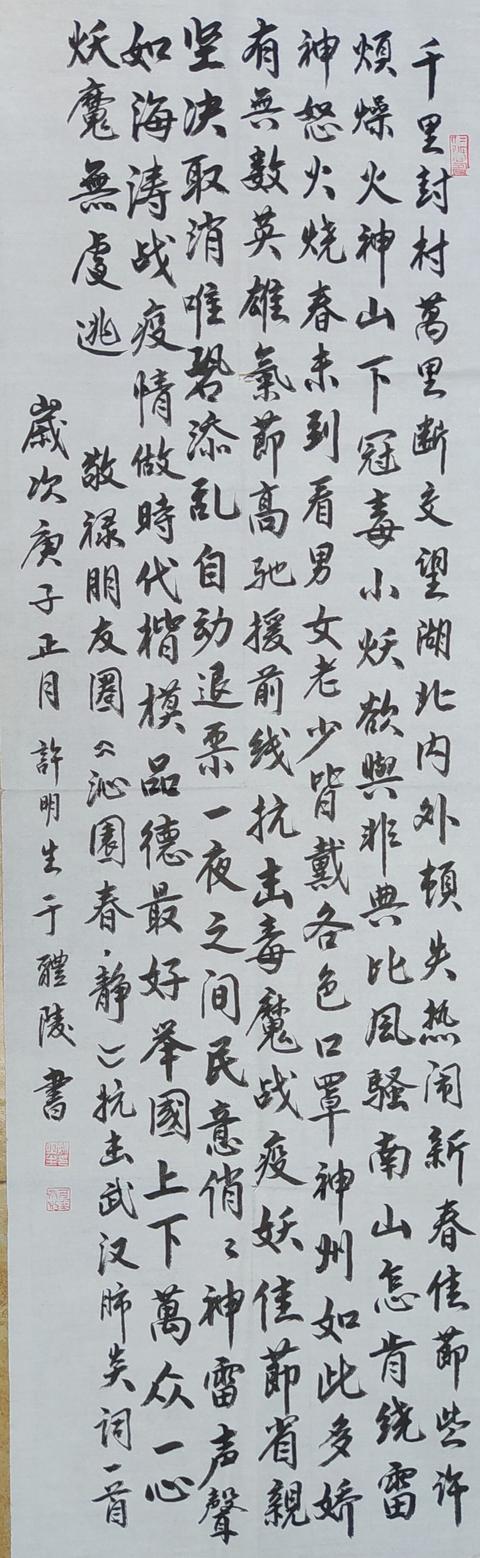 千里封村萬里断交望湖北内外顿失热闹新春佳節些许
烦燥火神山下冠毒小妖欲與非典比风騷南山怎肯绕雷
神怒火烧春未到看男女老少皆戴各色口罩神州如此多娇
有無数英雄氣節高驰援前线抗击毒魔战疫妖佳節省親
坚决取消唯恐添乱自动退票一夜之间民意俏〻神雷声聲
如海涛战疫情做時代楷模品德最好举國上下萬众一心
妖魔無處逃
敬禄朋友圈《沁園春·静》抗击武汉肺炎词一首
歲次庚子正月許明生于醴陵書